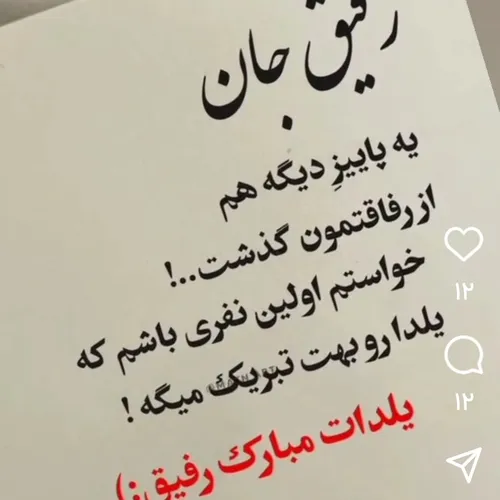 رفیق جان
یه پاییزِ دیگه هم
از رفاقتمون گذشت..!
خواستم اولین نفری باشم که
یلدا رو بهت تبریک میگه !
یلدات مبارک رفیق:)
۱۲
۱۲